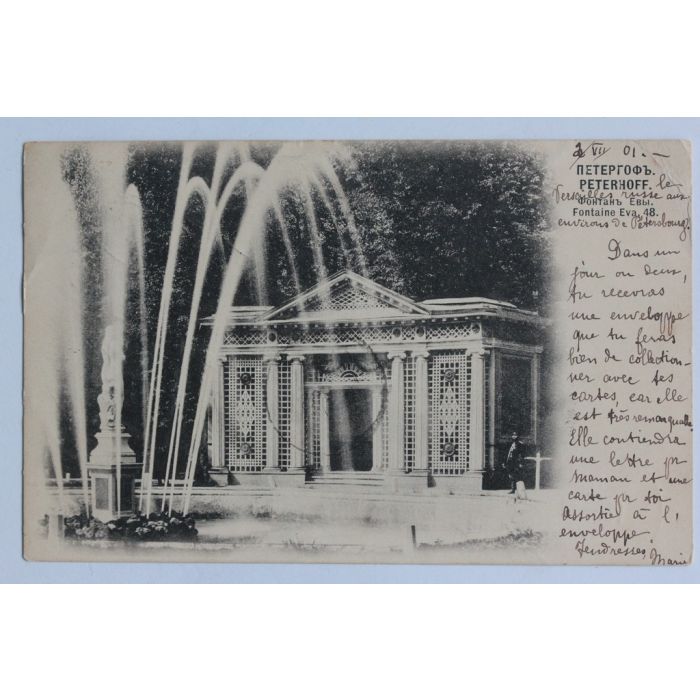 2 VII 01. —
ПЕТЕРГОФЪ.
PETERHOFF. le
Versailles russe aux
Фонтанъ Евы.
Fontaine Eva, 48.
environs de Pétersbourg.
Dans un
jour ou deux,
tu recevras
une enveloppe
que tu feras
bien de collection-
ner avec tes
cartes, car elle
est très remarquable.
Elle contiendra
une lettre pr
maman et une
carte pr toi
assortie à l'
enveloppe.
Tendresses, Marie